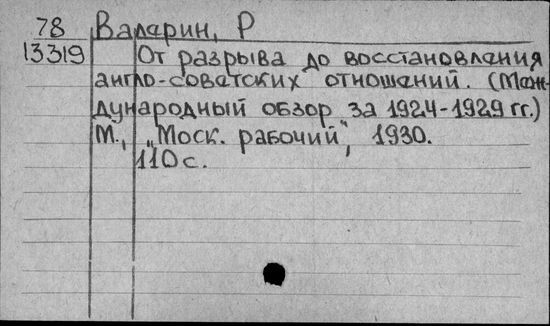 78 Валарин, Р
13319 От разрыва до восстановления
англо-советских отношений. (Меж-
дународный обзор за 1924-1929 гг.)
М., „Моск. рабочий", 1930.
110 с.